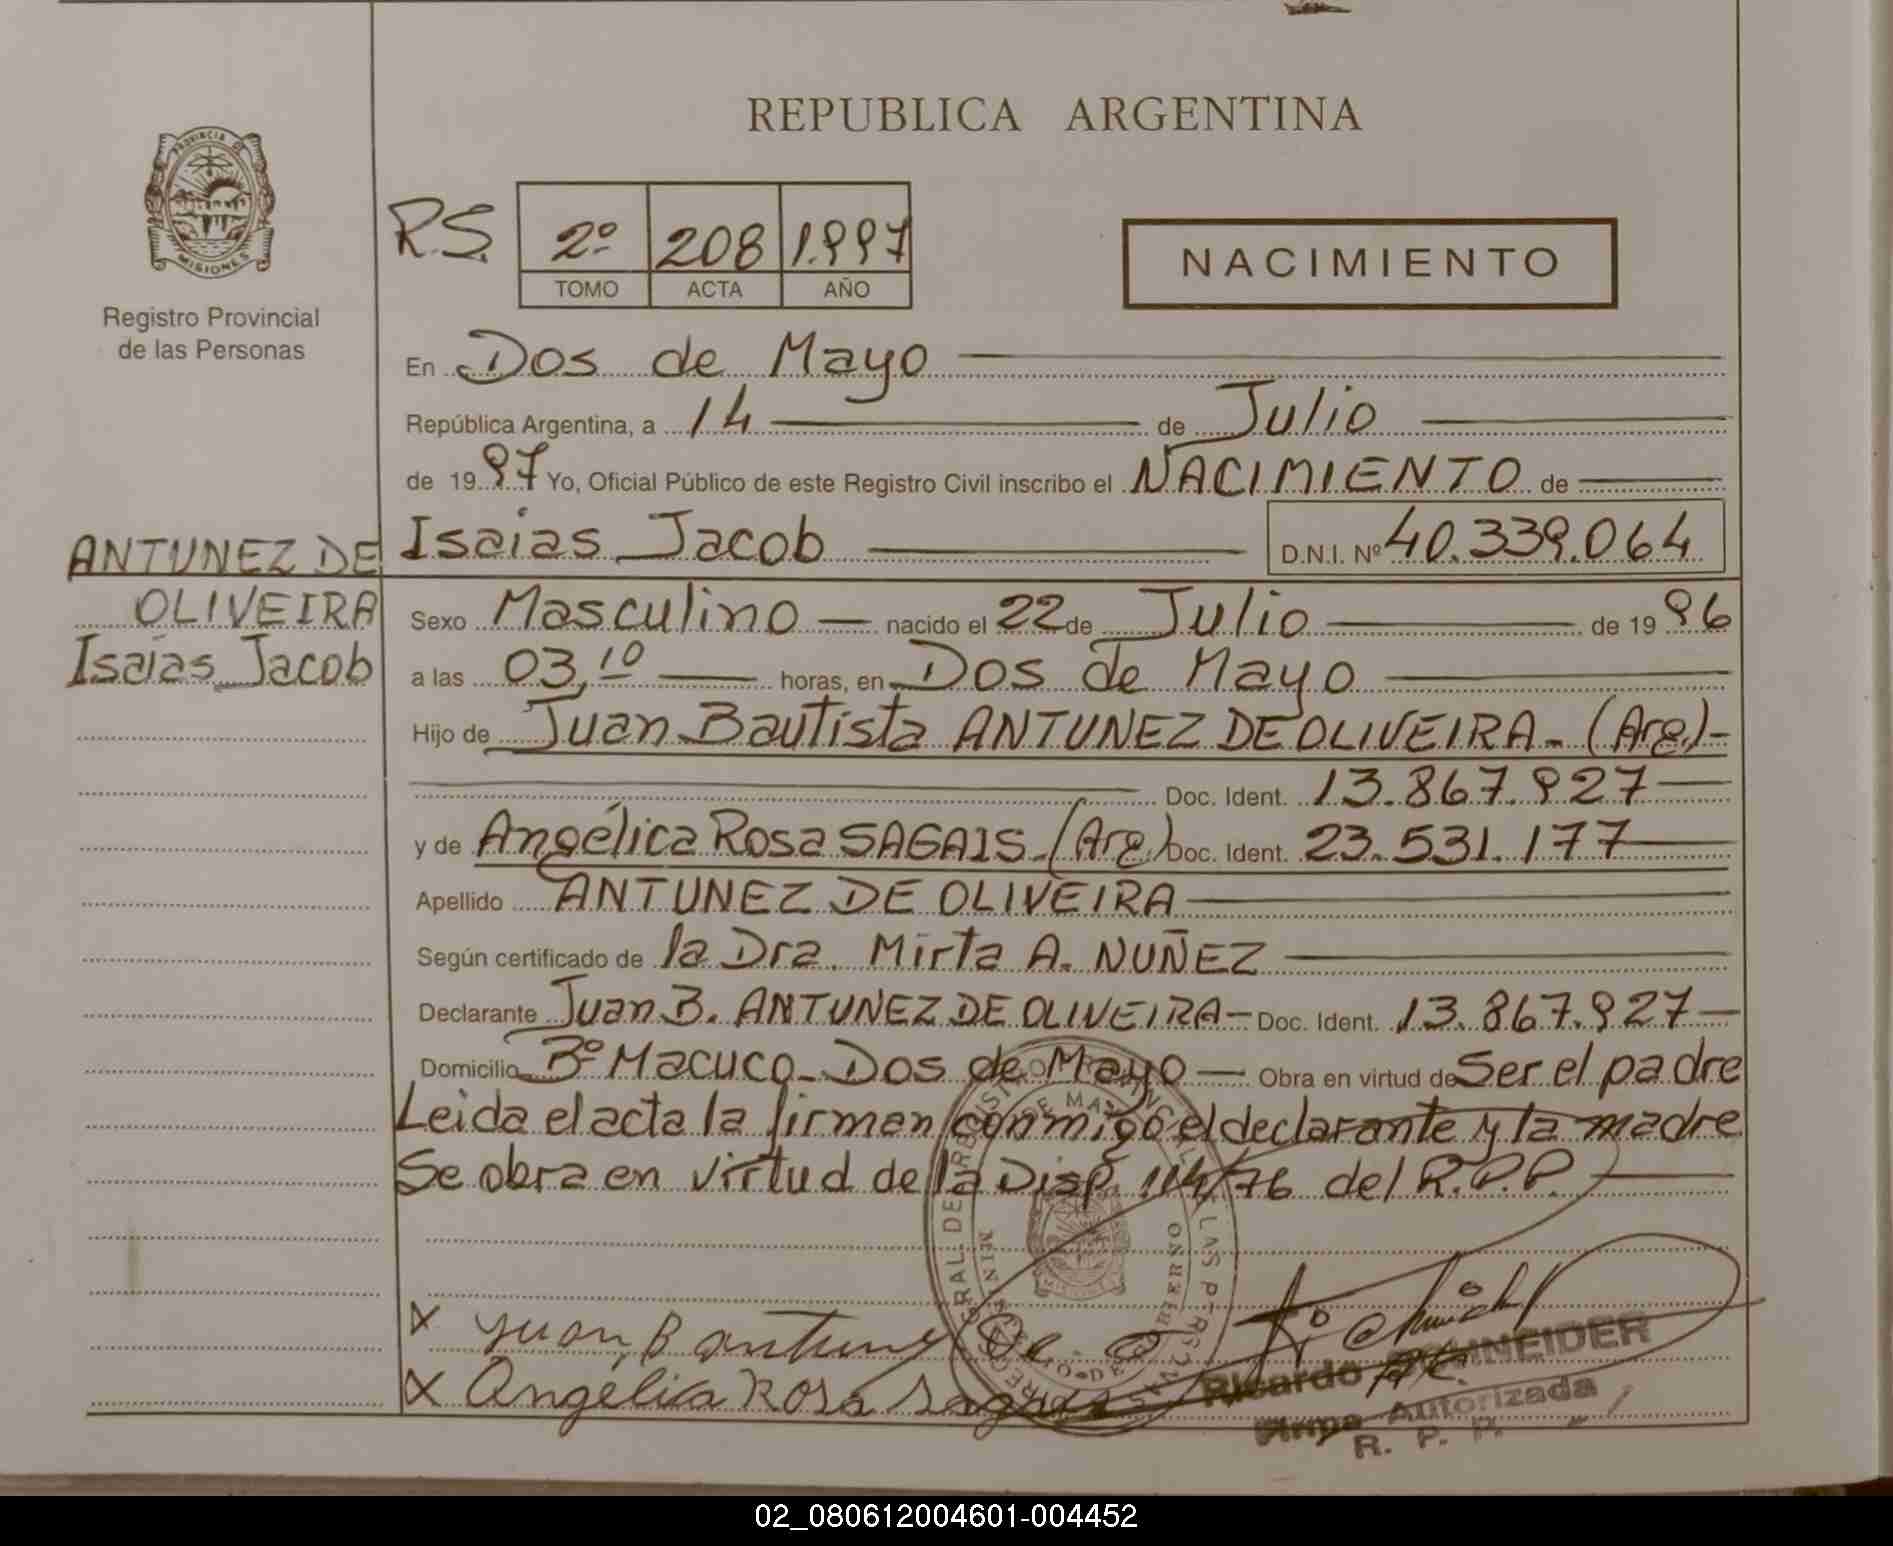 REPUBLICA ARGENTINA
PROVINCIA DE
MISIONES
Registro Provincial
de las Personas
R.S. 2º 208 1.997
TOMO ACTA AÑO
NACIMIENTO
En Dos de Mayo
República Argentina, a 14 de Julio
de 19 97 Yo, Oficial Público de este Registro Civil inscribo el NACIMIENTO de
Isaias Jacob D.N.I. Nº 40.339.064
ANTUNEZ DE
OLIVEIRA
Isaías Jacob
Sexo Masculino nacido el 22 de Julio de 19 96
a las 03,10 horas, en Dos de Mayo
Hijo de Juan Bautista ANTUNEZ DE OLIVEIRA - (Arg.) -
Doc. Ident. 13.867.927
y de Angélica Rosa SAGAIS - (Arg.) Doc. Ident. 23.531.177
Apellido ANTUNEZ DE OLIVEIRA
Según certificado de la Dra. Mirta A. NUÑEZ
Declarante Juan B. ANTUNEZ DE OLIVEIRA - Doc. Ident. 13.867.927
Domicilio Bº Macuco - Dos de Mayo Obra en virtud de Ser el padre
Leida el acta la firman conmigo el declarante y la madre
Se obra en virtud de la Disp. 114/76 del R.P.P.
x Juan, B antunez De. O
x Angelica Rosa Sagais
Ricardo SCHNEIDER
Firma Autorizada
R. P. P.
02_080612004601-004452